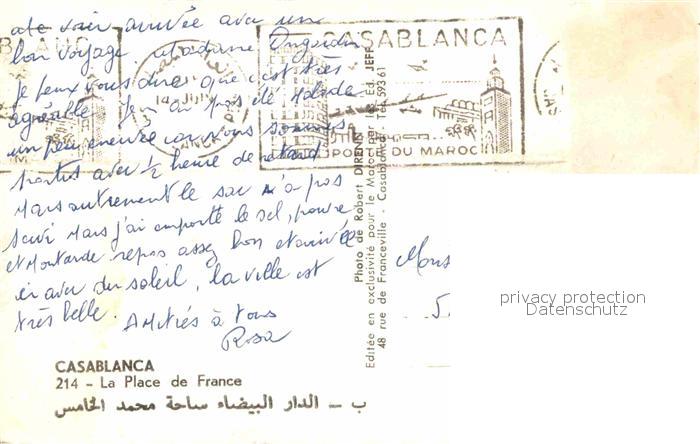 ate soir arrivée avec un
bon voyage. Madame
je peux vous dire que c'est très
agréable j'en ai pas été malade
un peu énervé car nous sommes
partis avec 1/2 heure de retard
Mais autrement le sac n'a pas
servi Mais j'ai emporté le sel, poivre
et Moutarde repas assez bon et arrivée
ici avec du soleil, la ville est
très belle. Amitiés à tous
Rosa
CASABLANCA
214 - La Place de France
ب - الدار البيضاء ساحة محمد الخامس
BLANC
14
CASABLANCA
PORT DU MAROC
Photo de Robert DIRENE
Editée en exclusivité pour le Maroc par les Ed. JEFF
48 rue de Franceville - Casablanca - Tél. 593 61
Mons
5
privacy protection
Datenschutz